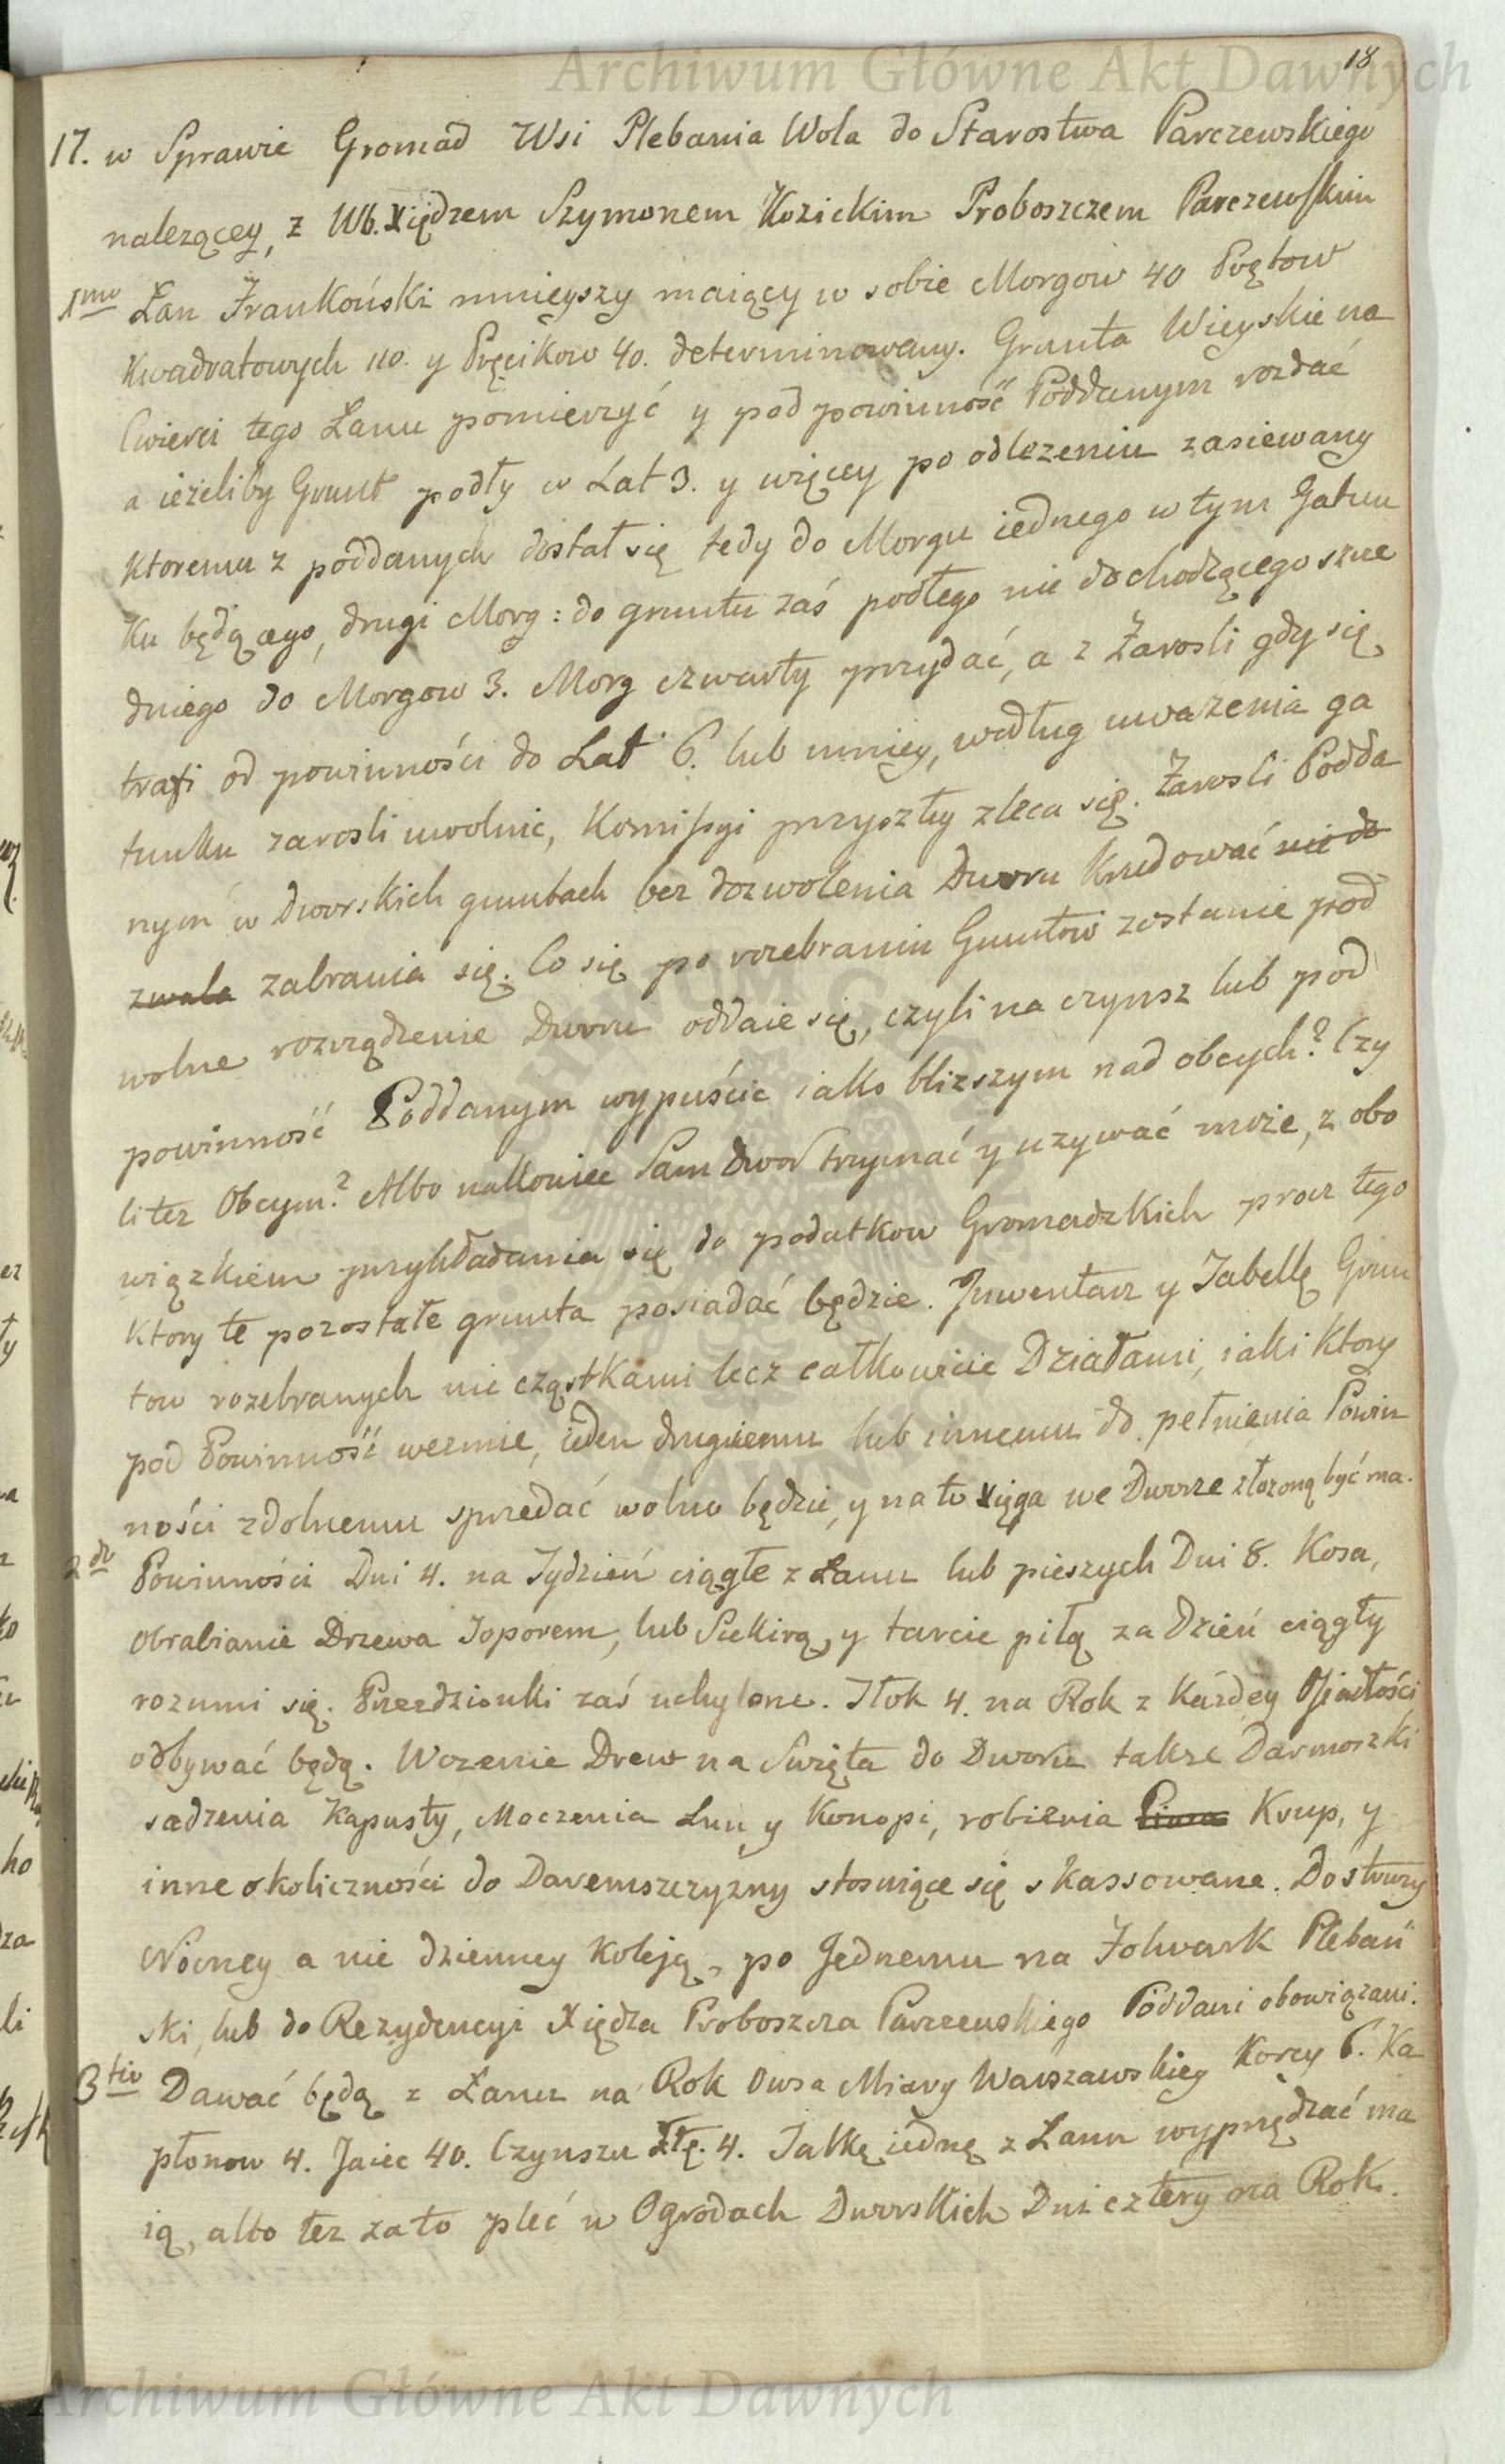 Archiwum Główne Akt Dawnych
18
17. w Sprawie Gromad Wsi Plebania Wola do Starostwa Parczewskiego
nalezącey, z Wb. Xiędzem Szymonem Kozickim Proboszczem Parczewskim
1mo Łan Frankoński mnieyszy maiący w sobie Morgow 40 Prętow
Kwadratowych 110. y Pręcikow 40. determinowany. Grunta Wieyskie na
Cwierci tego Łanu pomierzyć y pod powinność Poddanym rozdać
a ieżeliby Grunt podły w Lat 3. y więcey po odlezeniu zasiewany
Ktoremu z poddanych dostał się tedy do Morgu iednego w tym Gatun
Ku będącego, drugi Morg: do gruntu zaś podłego nie dochodzącego szre
dniego do Morgow 3. Morg czwarty przydać, a z Zarosli gdy się
trafi od powinności do Lat 6. lub mniey, według uwazenia ga
tunku zarosli uwolnic, Komissyi przyszłey zleca się. Zarosli Podda
nym w Dworskich gruntach bez dozwolenia Dworu Krudować nie do
zwala zabrania się. Co się po rozebraniu Gruntow zostanie pod
wolne rozrządzenie Dworu oddaie się, czyli na czynsz lub pod
powinność Poddanym wypuście iako blizszym nad obcych? Czy
li tez Obcym? Albo nakoniec Sam Dwor trzymać y uzywać może, z obo
wiązkiem przykładania się do podatkow Gromadzkich przez tego
Ktory te pozostałe grunta posiadać będzie. Inwentarz y Tabellę Grun
tow rozebranych nie cząstkami lecz całkowicie Działami, iaki Ktory
pod Powinność wezmie, ieden drugiemu lub innemu do pełnienia Powin
ności zdolnemu sprzedać wolno będzie, y na to Xięga we Dworze złozoną być ma.
2do Powinności Dni 4. na Tydzień ciągłe z Łanu lub pieszych Dni 8. Kosa,
Obrabianie Drzewa Toporem, lub Siekirą, y tarcie piłą za Dzień ciągły
rozumi się. Przędzionki zaś uchylone. Tłok 4. na Rok z Każdey Osiadłości
odbywać będą. Wozenie Drew na Swięta do Dworu takze Darmoszki
sadzenia Kapusty, Moczenia Lnu y Konopi, robienia Krup, y
inne okoliczności do Daremszczyzny stosuiące się skassowane. Do stróży
Nocney a nie dzienney Koleją, po Jednemu na Folwark Plebań
ski, lub do Rezydencyi Xiędza Proboszcza Parczewskiego Poddani obowiązani.
3tio Dawać będą z Łanu na Rok Owsa Miary Warszawskiey Korcy 6. Ka
płonow 4. Jaiec 40. Czynszu Złp. 4. Talkę iednę z Łanu wyprzędzać ma
ią, albo tez za to pleć w Ogrodach Dworskich Dni cztery na Rok.
Archiwum Główne Akt Dawnych